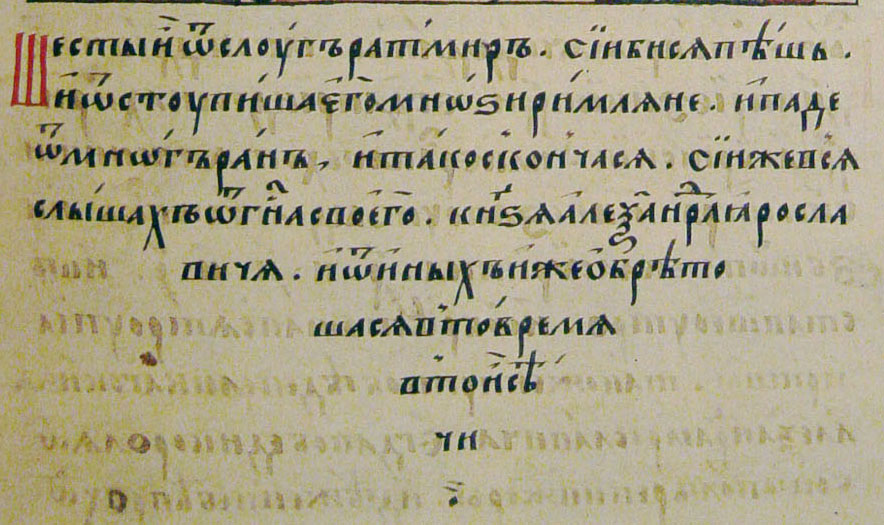 Шестыи ѿ слоугъ ратмиръ . сіи бися пѣшь .
и ѿстоупиша єго мнѡѕи римляне . и паде
ѿ мнѡгъ ранъ , и тако скончася . сіи же вся
слышахъ ѿ гн҃а своего . кнѕя алеѯанⷣра ꙗросла
вича . и ѿ иныхъ иже ѡбрѣто
шася в то время
в тои сѣ
чи
: